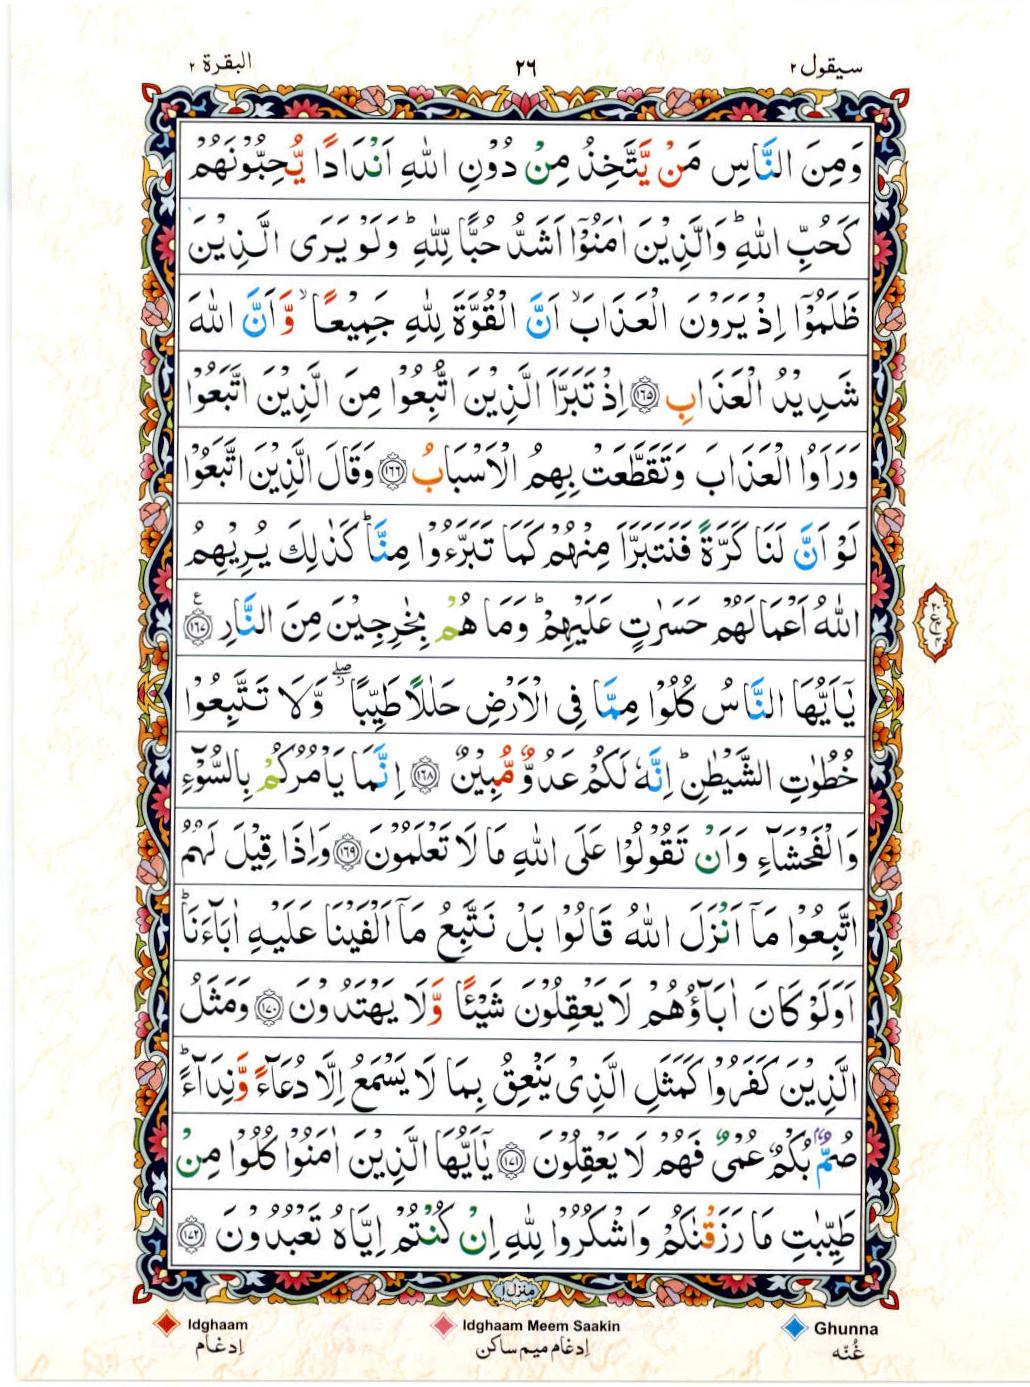 سيقول ٢
٢٦
البقرة ٢
وَمِنَ النَّاسِ مَنْ يَّتَّخِذُ مِنْ دُوْنِ اللّٰهِ اَنْدَادًا يُّحِبُّوْنَهُمْ
كَحُبِّ اللّٰهِ ؕ وَالَّذِيْنَ اٰمَنُوْٓا اَشَدُّ حُبًّا لِّلّٰهِ ؕ وَلَوْ يَرَى الَّذِيْنَ
ظَلَمُوْٓا اِذْ يَرَوْنَ الْعَذَابَ ۙ اَنَّ الْقُوَّةَ لِلّٰهِ جَمِيْعًا ۙ وَّاَنَّ اللّٰهَ
شَدِيْدُ الْعَذَابِ ﴿١٦٥﴾ اِذْ تَبَرَّاَ الَّذِيْنَ اتُّبِعُوْا مِنَ الَّذِيْنَ اتَّبَعُوْا
وَرَاَوُا الْعَذَابَ وَتَقَطَّعَتْ بِهِمُ الْاَسْبَابُ ﴿١٦٦﴾ وَقَالَ الَّذِيْنَ اتَّبَعُوْا
لَوْ اَنَّ لَنَا كَرَّةً فَنَتَبَرَّاَ مِنْهُمْ كَمَا تَبَرَّءُوْا مِنَّا ؕ كَذٰلِكَ يُرِيْهِمُ
اللّٰهُ اَعْمَالَهُمْ حَسَرٰتٍ عَلَيْهِمْ ؕ وَمَا هُمْ بِخٰرِجِيْنَ مِنَ النَّارِ ﴿١٦٧﴾ ع
يٰٓاَيُّهَا النَّاسُ كُلُوْا مِمَّا فِى الْاَرْضِ حَلٰلًا طَيِّبًا ۖ وَّلَا تَتَّبِعُوْا
خُطُوٰتِ الشَّيْطٰنِ ؕ اِنَّهٗ لَكُمْ عَدُوٌّ مُّبِيْنٌ ﴿١٦٨﴾ اِنَّمَا يَاْمُرُكُمْ بِالسُّوْٓءِ
وَالْفَحْشَآءِ وَاَنْ تَقُوْلُوْا عَلَى اللّٰهِ مَا لَا تَعْلَمُوْنَ ﴿١٦٩﴾ وَاِذَا قِيْلَ لَهُمُ
اتَّبِعُوْا مَآ اَنْزَلَ اللّٰهُ قَالُوْا بَلْ نَتَّبِعُ مَآ اَلْفَيْنَا عَلَيْهِ اٰبَآءَنَا ؕ
اَوَلَوْ كَانَ اٰبَآؤُهُمْ لَا يَعْقِلُوْنَ شَيْئًا وَّلَا يَهْتَدُوْنَ ﴿١٧٠﴾ وَمَثَلُ
الَّذِيْنَ كَفَرُوْا كَمَثَلِ الَّذِىْ يَنْعِقُ بِمَا لَا يَسْمَعُ اِلَّا دُعَآءً وَّنِدَآءً ؕ
صُمٌّۢ بُكْمٌ عُمْىٌ فَهُمْ لَا يَعْقِلُوْنَ ﴿١٧١﴾ يٰٓاَيُّهَا الَّذِيْنَ اٰمَنُوْا كُلُوْا مِنْ
طَيِّبٰتِ مَا رَزَقْنٰكُمْ وَاشْكُرُوْا لِلّٰهِ اِنْ كُنْتُمْ اِيَّاهُ تَعْبُدُوْنَ ﴿١٧٢﴾
منزل ١
Idghaam
اِدغام
Idghaam Meem Saakin
اِدغام میم ساکن
Ghunna
غُنّه